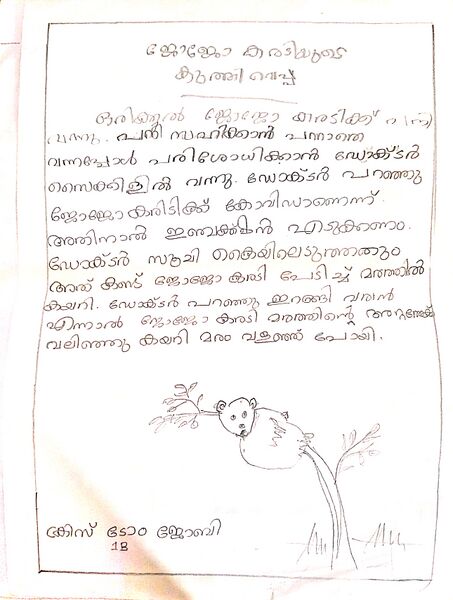 ജോജോ കരടിയുടെ
കുത്തി വെപ്പ്
ഒരിക്കൽ ജോജോ കരടിക്ക് പനി
വന്നു. പനി സഹിക്കാൻ പറ്റാതെ
വന്നപ്പോൾ പരിശോധിക്കാൻ ഡോക്ടർ
സൈക്കിളിൽ വന്നു. ഡോക്ടർ പറഞ്ഞു
ജോജോ കരിടിക്ക് കോവിഡാണെന്ന്.
അതിനാൽ ഇഞ്ചക്ഷൻ എടുക്കണം.
ഡോക്ടർ സൂചി കൈയിലെടുത്തതും
അത് കണ്ട് ജോജോ കരടി പേടിച്ച് മരത്തിൽ
കയറി. ഡോക്ടർ പറഞ്ഞു ഇറങ്ങി വരാൻ
എന്നാൽ ജോജോ കരടി മരത്തിന്റെ അറ്റത്തേക്ക്
വലിഞ്ഞു കയറി മരം വളഞ്ഞ് പോയി.
ക്രിസ് ടോം ജോബി
1B